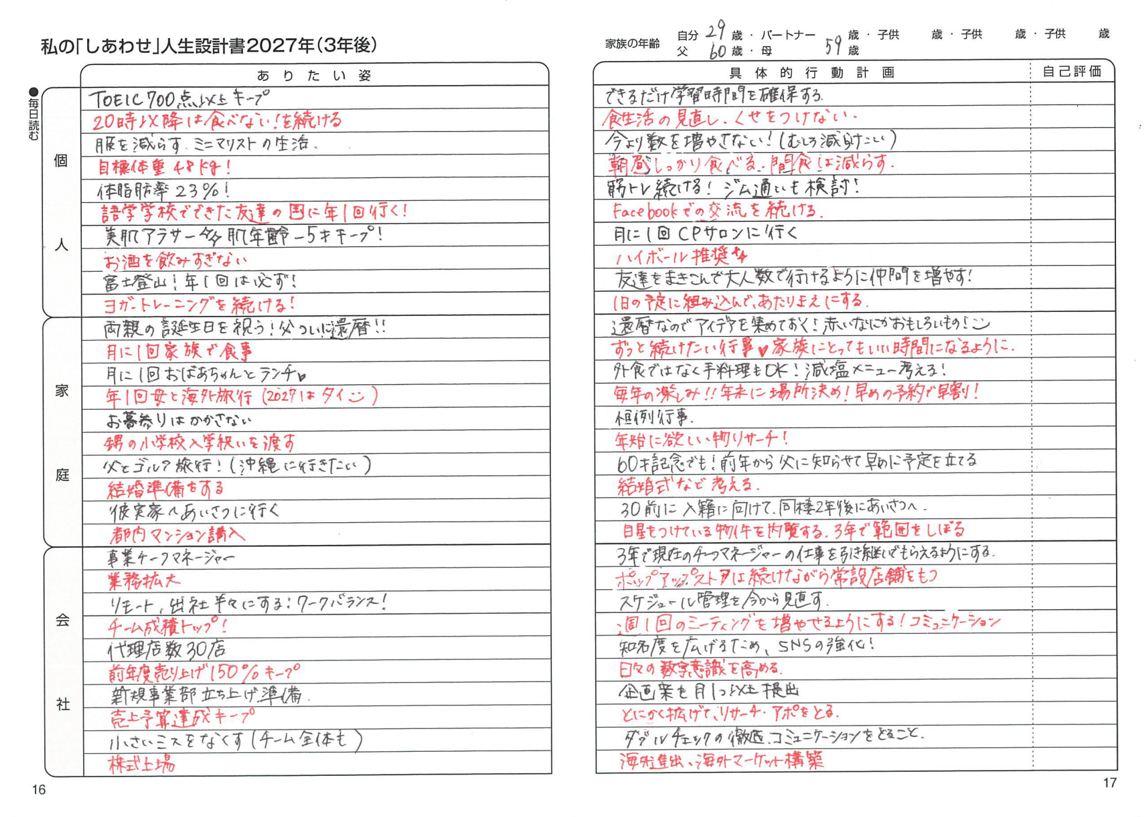 私の「しあわせ」人生設計書2027年（3年後）
家族の年齢
自分 29 歳・パートナー 歳・子供 歳・子供 歳・子供 歳
父 60 歳・母 59 歳
●毎日読む
ありたい姿
具体的行動計画
自己評価
個人
TOEIC 700点以上キープ
できるだけ学習時間を確保する.
20時以降は食べない!を続ける
食生活の見直し、くせをつけない.
服を減らす ミニマリストの生活.
今より数を増やさない!(むしろ減らすこい)
目標体重 48kg!
朝昼しっかり食べる. 間食は減らす.
体脂肪率 23%!
筋トレ続ける! ジム通いも検討!
語学学校でできた友達の国に年1回行く!
Facebookでの交流を続ける.
美肌アラサー 肌年齢 -5才キープ!
月に1回 CPサロンに行く
お酒を飲みすぎない
ハイボール推奨
富士登山! 年1回は必ず!
友達をまきこんで大人数で行けるように仲間を増やす!
ヨガ・トレーニングを続ける!
1日の予定に組み込んで、あたりまえにする.
家庭
両親の誕生日を祝う! 父ついに還暦!!
還暦なのでアイデアを集めておく! 赤いなにかおもしろいもの!
月に1回家族で食事
ずっと続けたい行事♥家族にとってもいい時間になるように.
月に1回おばあちゃんとランチ♥
外食ではなく手料理もOK! 減塩メニュー考える!
年1回母と海外旅行 (2027はタイ)
毎年の楽しみ!! 年末に場所決め! 早めの予約で早割!
お墓参りはかかさない
恒例行事.
甥の小学校入学祝いを渡す
年始に欲しい物リサーチ!
父とゴルフ旅行! (沖縄に行きたい)
60才記念でも! 前年から父に知らせて早めに予定を立てる
結婚準備をする
結婚式など考える.
彼実家へあいさつに行く
30前に入籍に向けて、同棲2年後にあいさつへ.
都内マンション購入
目星をつけている物件を内覧する. 3年で範囲をしぼる
会社
事業チーフマネージャー
3年で現在のチーフマネージャーの仕事を引き継いでもらえるようにする.
業務拡大
ポップアップストアは続けながら常設店舗をもつ
リモート、出社半々にする: ワークバランス!
スケジュール管理を今から見直す.
チーム成績トップ!
週1回のミーティングを増やせるようにする! コミュニケーション
代理店数30店
知名度を広げるため、SNSの強化!
前年度売り上げ150%キープ
日々の数字意識を高める.
新規事業部立ち上げ準備.
企画案を月1つ以上提出
売上予算達成キープ
とにかく拡げて、リサーチ・アポをとる.
小さいミスをなくす (チーム全体も)
ダブルチェックの徹底. コミュニケーションをとること.
株式上場
海外進出、海外マーケット構築
16
17